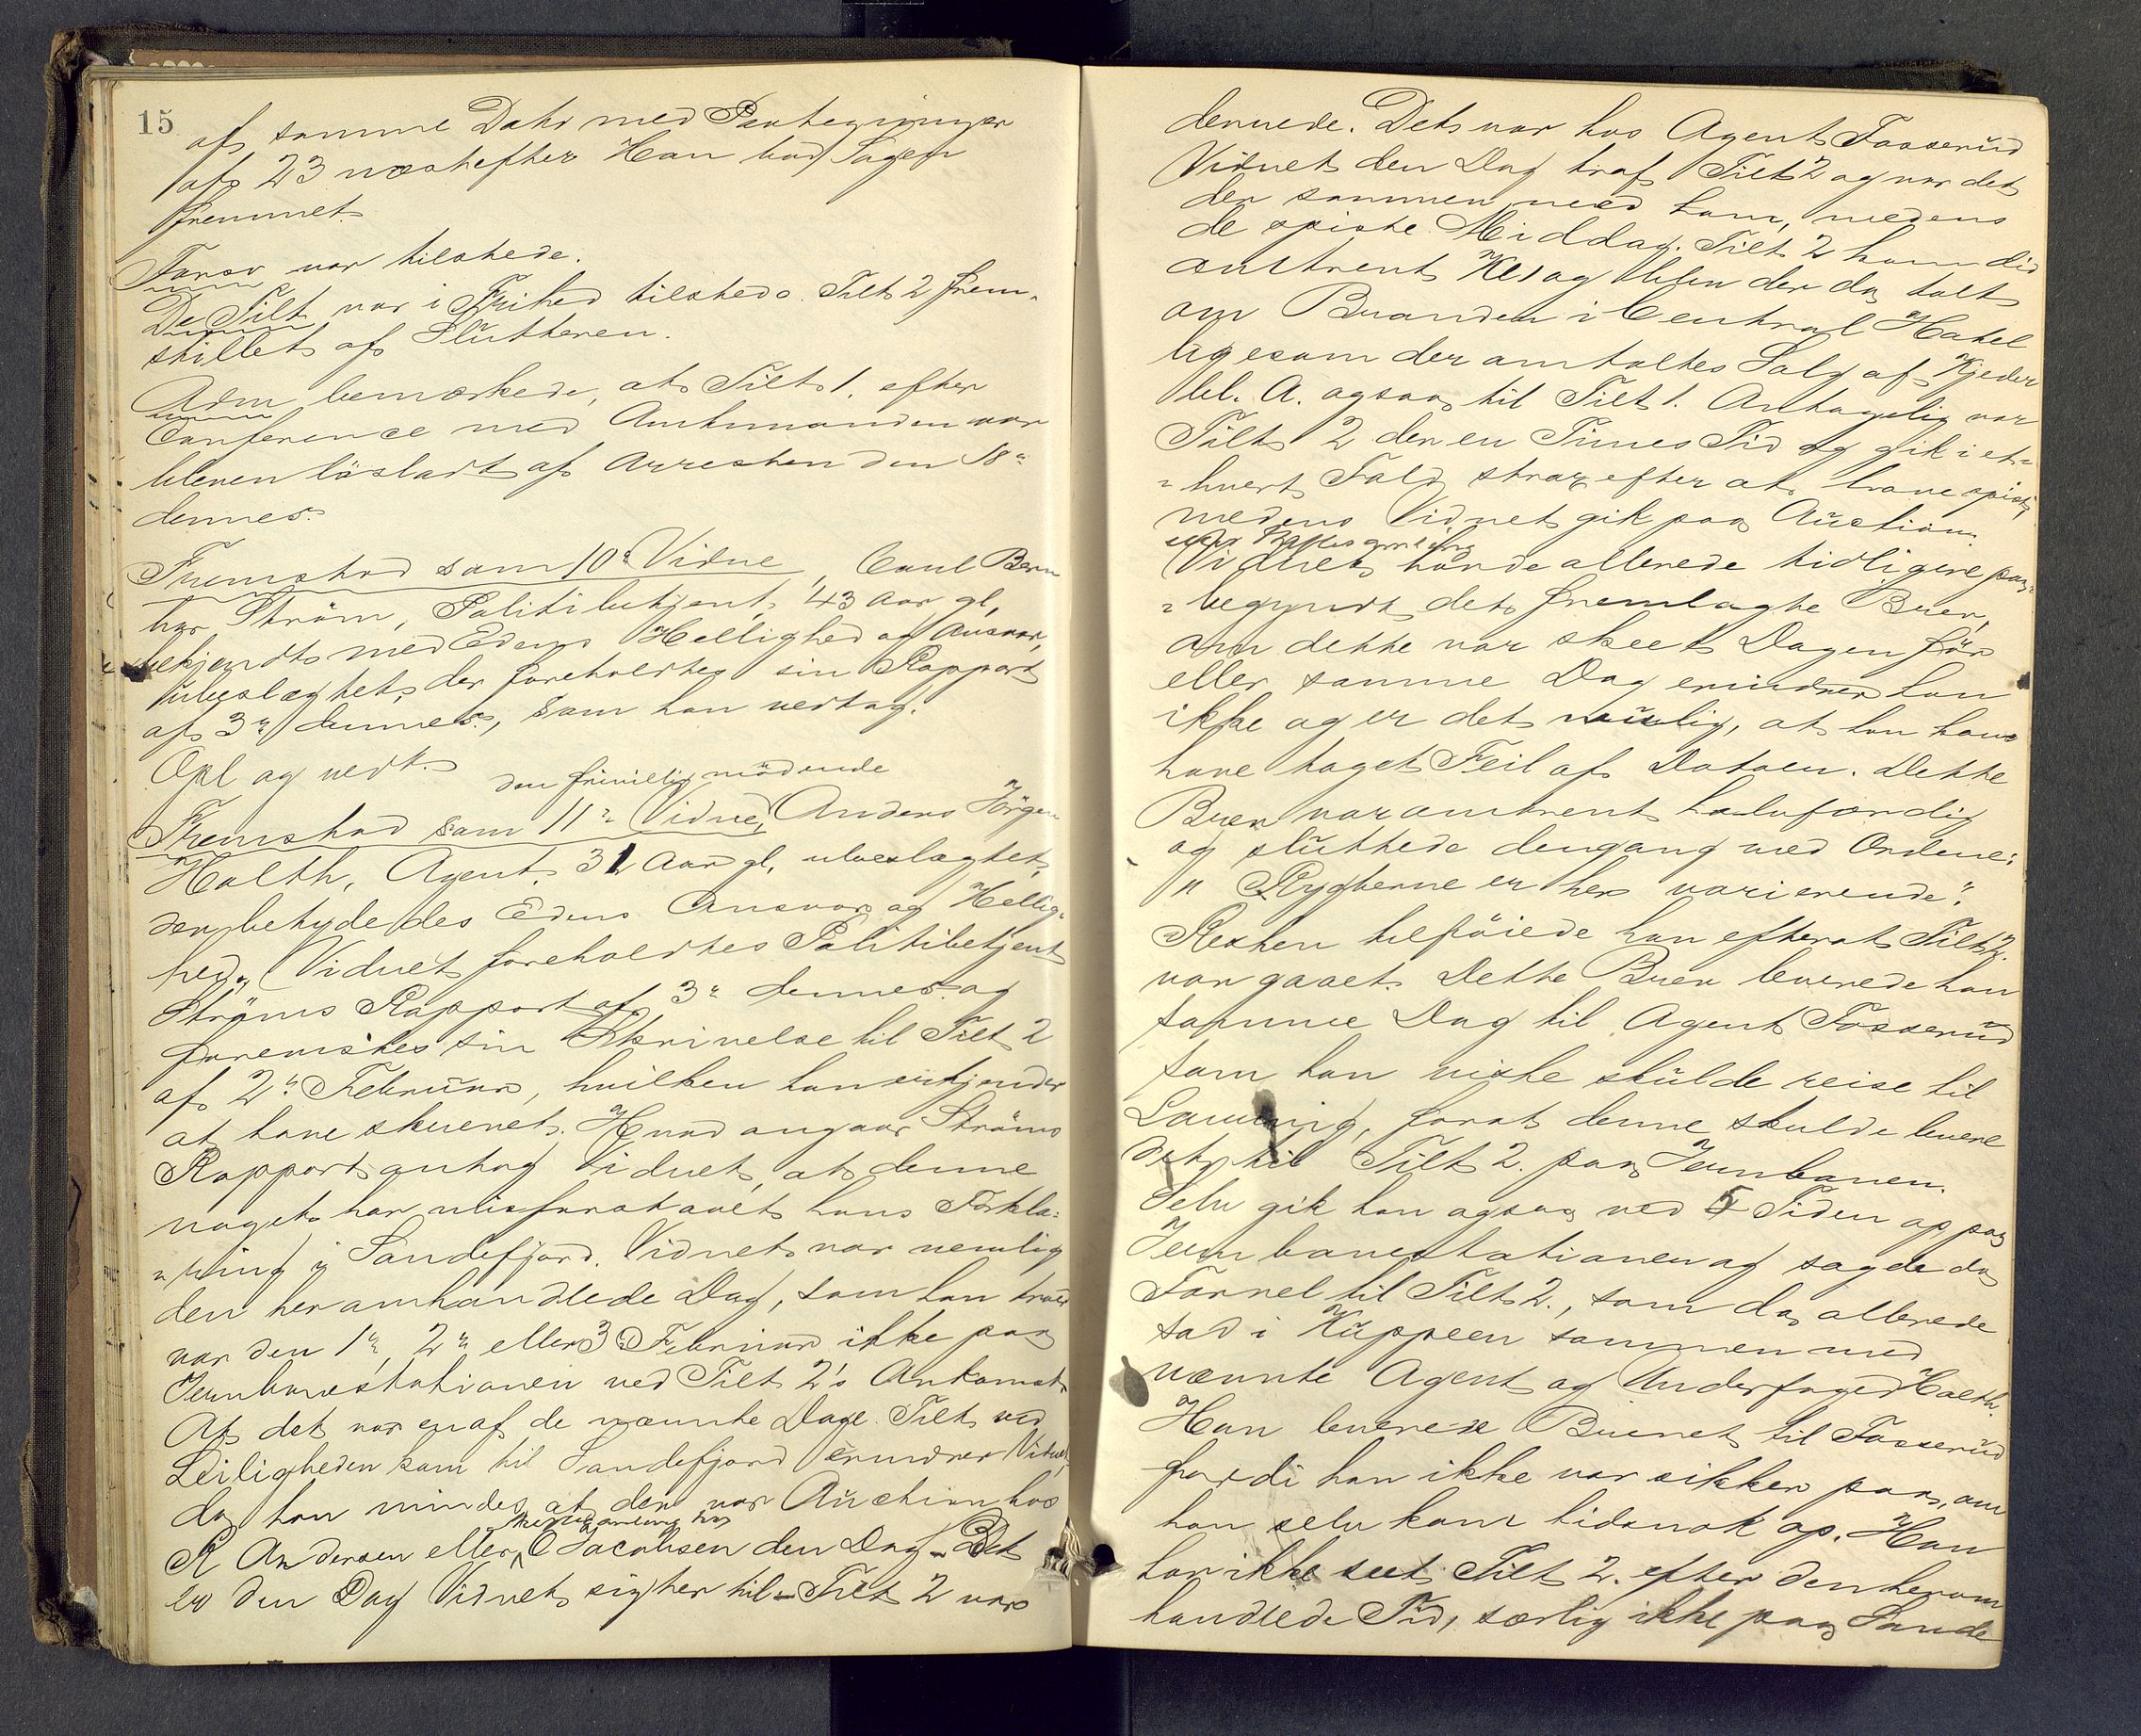 15
af samme Dato med Paategninger
af 23 næstefter Han bad Sagen
fremmet.
Forsv var tilstede.
De Tilt var i Frihed tilstede. Tilt 2 frem-
stillet af Slutteren.
Adm bemærkede, at Tilt 1. efter
Conference med Amtmanden var
bleven løsladt af Arresten den 18de
dennes.
Fremstod som 10de Vidne, Carl Bern
har Strøm, Politibetjent, 43 Aar gl,
bekjendt med Edens Hellighed og Ansvar,
ubeslægtet, der foreholdtes sin Rapport
af 3de dennes, som han vedtog.
Opl og vedt.
den frivillig mødende
Fremstod som 11te Vidne, Anders Jörgen
Holth, Agent, 31 Aar gl, ubeslægtet,
der betydedes Edens Ansvar og Hellig-
hed. Vidnet foreholdtes Politibetjent
Strøms Rapport af 3de dennes og
forevistes sin Skrivelse til Tilt 2
af 2de Februar, hvilken han erkjender
at have skrevet. Hvad angaar Strøms
Rapport antog Vidnet, at denne
noget har misforstaaet hans Forkla-
ring i Sandefjord. Vidnet var nemlig
den her omhandlede Dag, som han troer
var den 1ste, 2den eller 3die Februar ikke paa
Jernbanestationen ved Tilt 2's Ankomst
At det var en af de nævnte Dage Tilt ved
Leiligheden kom til Sandefjord erindrer Vidnet,
da han mindes, at der var Auction hos
R Andersen eller O Jacobsen den Dag - Det
er den Dag Vidnet sigter til - Tilt 2 var
dernede. Det var hos Agent Fosserud
Vidnet den Dag traf Tilt 2 og var det
der sammen med ham, medens
de spiste Middag. Tilt 2 kom did
omtrent Kl 1 og blev der da talt
om Branden i Central Hotel
ligesom der omtaltes Salg af Kjeder
bl. A. ogsaa til Tilt 1. Antagelig var
Tilt 2 der en Times Tid og gik i et-
hvert Fald strax efter at have spist,
medens Vidnet gik paa Auction.
Vidnet havde allerede tidligere paa-
begyndt det fremlagte Brev,
om dette var skeet Dagen før
eller samme Dag erindrer han
ikke og er det mulig, at han kan
have taget Feil af Datoen. Dette
Brev var omtrent halvfærdig
og sluttede dengang med Ordene:
"Rygterne er her varierende".
Resten tilføiede han efterat Tilt 2.
var gaaet. Dette Brev leverede han
samme Dag til Agent Fosserud
som han vidste skulde reise til
Laurvig, forat denne skulde levere
det til Tilt 2. paa Jernbanen.
Selv gik han ogsaa ved 5 Tiden op paa
Jernbanestationen og sagde da
Farvel til Tilt 2., som da allerede
sad i Kuppeen sammen med
nævnte Agent og Underfoged Holth.
Han leverede Brevet til Fosserud
fordi han ikke var sikker paa, om
han selv kom tidsnok op. Han
har ikke seet Tilt 2. efter den herom
handlede Tid, særlig ikke paa Sande